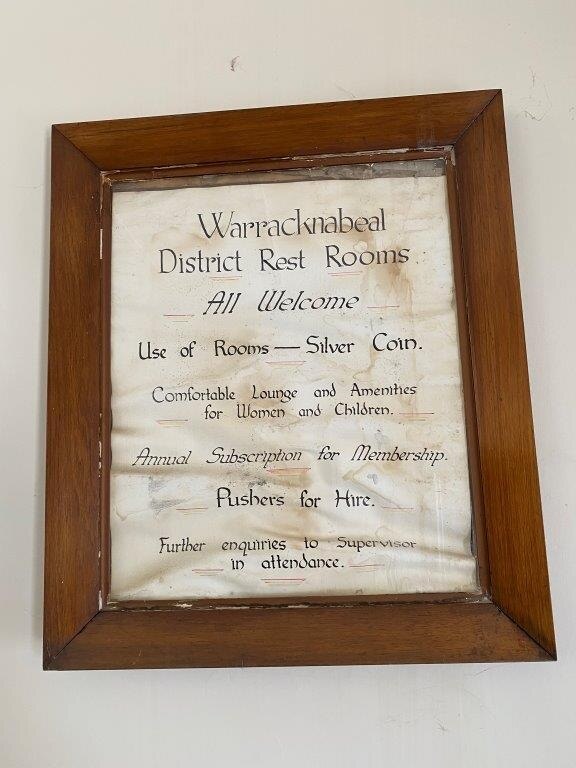 Warracknabeal
District Rest Rooms
All Welcome
Use of Rooms — Silver Coin.
Comfortable Lounge and Amenities
for Women and Children.
Annual Subscription for Membership.
Pushers for Hire.
Further enquiries to Supervisor
in attendance.